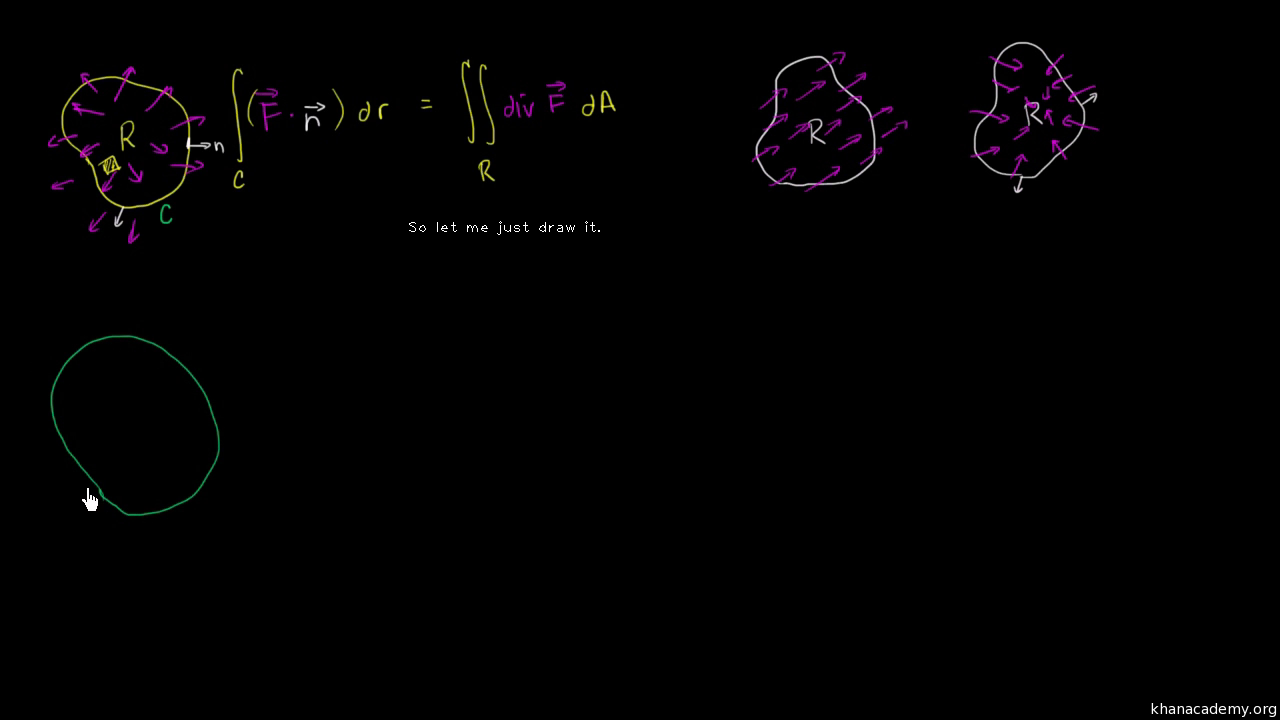 R
n
C
∫_C (F⃗ · n⃗) dr = ∬_R div F⃗ dA
R
R
So let me just draw it.
khanacademy.org